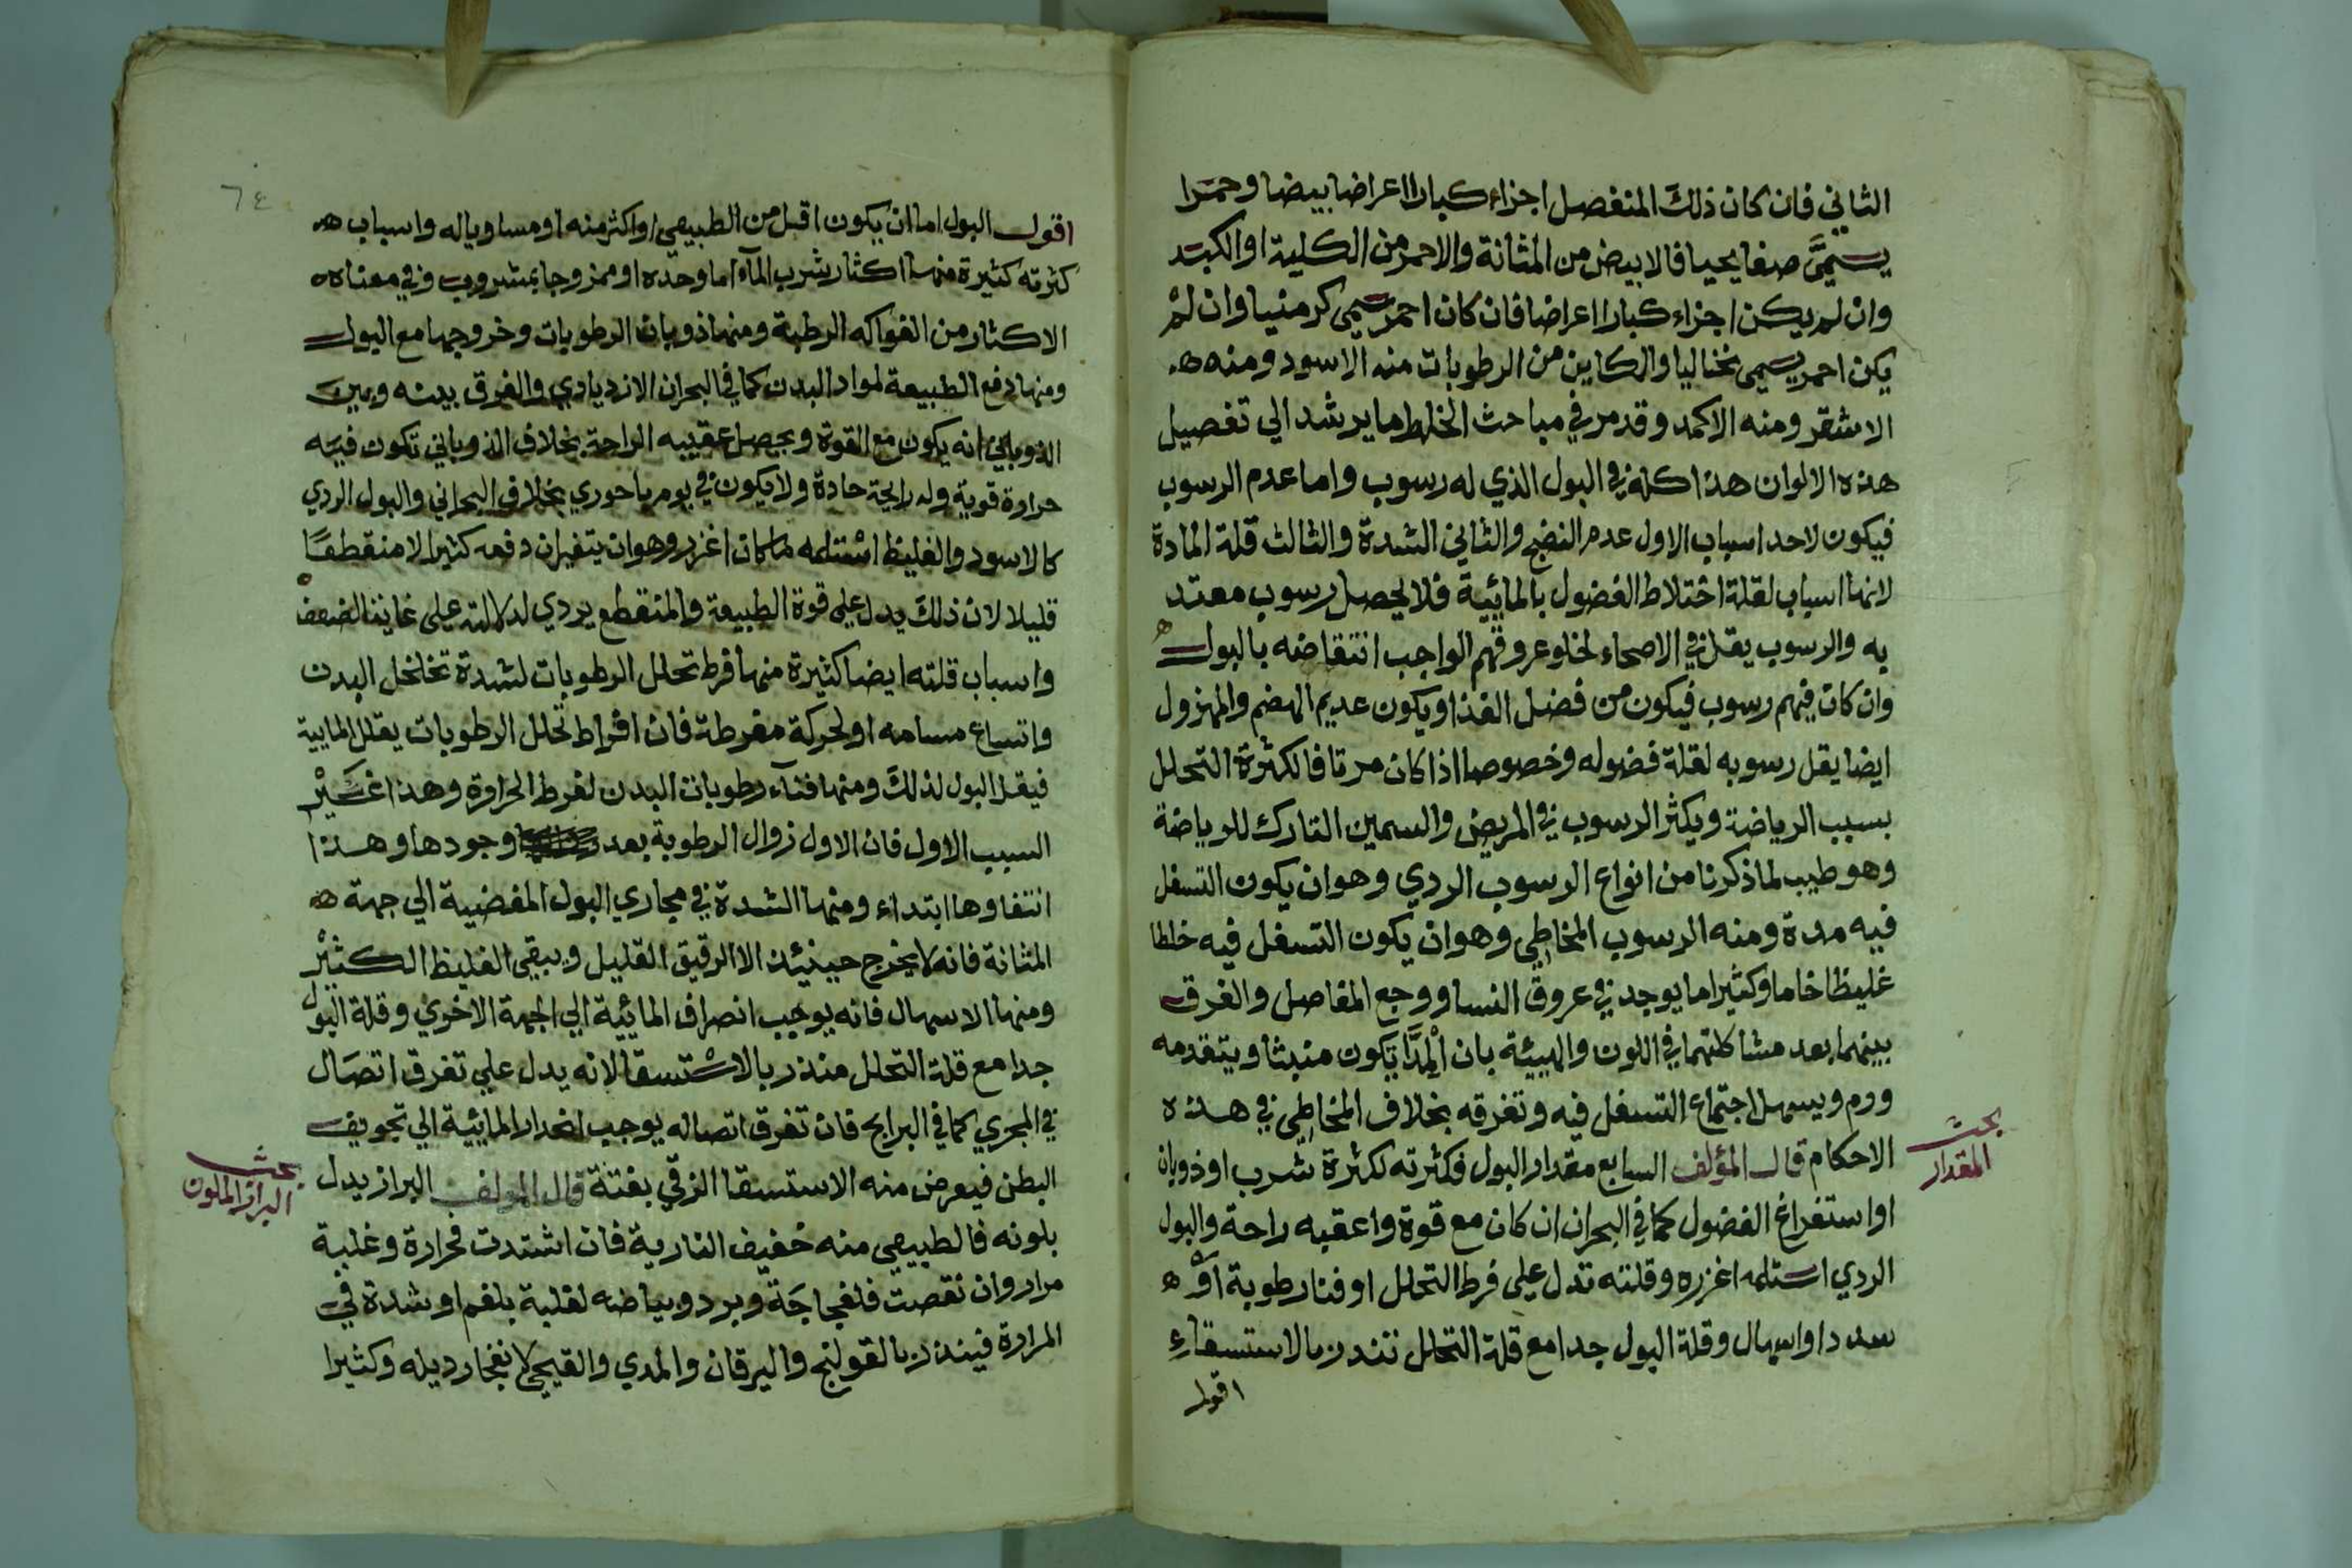 الثاني فان كان ذلك المنفصل اجزاء كبارا اعراضا بيضا وحمرا
يسمي صفايحيا فالابيض من المثانة والاحمر من الكلية او الكبد
وان لم يكن اجزاء كبارا اعراضا فان كان احمر يسمي كرسنيا وان لم
يكن احمر يسمي نخاليا والكاين من الرطوبات منه الاسود ومنه
الاشقر ومنه الاكمد وقد مر في مباحث الخلط ما يرشد الي تفصيل
هذه الالوان هذا كله في البول الذي له رسوب واما عدم الرسوب
فيكون لاحد اسباب الاول عدم النضج والثاني الشدة والثالث قلة المادة
لانها اسباب لقلة اختلاط الفضول بالمائية فلا يحصل رسوب معتد
به والرسوب يقل في الاصحاء لخلو عروقهم الواجب انتقاضه بالبول
وان كان فيهم رسوب فيكون من فضل الغذا ويكون عديم الهضم والمهزول
ايضا يقل رسوبه لقلة فضوله وخصوصا اذا كان مرتاضا لكثرة التحلل
بسبب الرياضة ويكثر الرسوب في المريض والسمين التارك للرياضة
وهو طيب لما ذكرنا من انواع الرسوب الردي وهو ان يكون التسفل
فيه مدة ومنه الرسوب المخاطي وهو ان يكون التسفل فيه خلطا
غليظا خاما وكثيرا ما يوجد في عروق النسا ووجع المفاصل والفرق
بينهما بعد مشاكلتهما في اللون والهيئة بان المدا تكون منبثا ويتقدمه
ورم ويسهل اجتماع التسفل فيه وتفرقه بخلاف المخاطي في هذه
الاحكام قال المؤلف السابع مقدار البول فكثرته لكثرة شرب او ذوبان
او استفراغ الفضول كما في البحران ان كان مع قوة واعقبه راحة والبول
الردي اسلمه اغزره وقلته تدل علي فرط التحلل او فنا رطوبة او
سدد او اسهال وقلة البول جدا مع قلة التحلل تنذر بالاستسقاء
اقول
بحث
المقدار
٦٤
اقول البول اما ان يكون اقل من الطبيعي او اكثر منه او مساويا له واسباب
كثرته كثيرة منها اكثار شرب المآء اما وحده او ممزوجا بمشروب وفي معناه
الاكثار من الفواكه الرطبة ومنها ذوبان الرطوبات وخروجها مع البول
ومنها دفع الطبيعة لمواد البدن كما في البحران الازديادي والفرق بينه وبين
الذوباني انه يكون مع القوة ويحصل عقيبه الراحة بخلاف الذوباني تكون فيه
حراوة قوية وله رايحة حادة ولا يكون في يوم باحوري بخلاف البحراني والبول الردي
كالاسود والغليظ اسلمه ما كان اغزر وهو ان يتفجر ان دفعه كثيرا لا منقطعا
قليلا لان ذلك يدل علي قوة الطبيعة والمنقطع يردي لدلالته علي غاية الضعف
واسباب قلته ايضا كثيرة منها فرط تحلل الرطوبات لشدة تخلخل البدن
واتساع مسامه او لحركة مفرطة فان افراط تحلل الرطوبات يقلل المايية
فيقل البول لذلك ومنها فنآء رطوبات البدن لفرط الحراوة وهذا غير
السبب الاول فان الاول زوال الرطوبة بعد وجودها وهذا
انتفاوها ابتداء ومنها الشدة في مجاري البول المفضية الي جهة
المثانة فانه لا يخرج حينئذ الا الرقيق القليل ويبقي الغليظ الكثير
ومنها الاسهال فانه يوجب انصراف المائية الي الجهة الاخري وقلة البول
جدا مع قلة التحلل منذر بالاستسقا لانه يدل علي تفرق اتصال
في المجري كما في البرابخ فان تفرق اتصاله يوجب انحدار المائية الي تجويف
البطن فيعرض منه الاستسقا الزقي بغتة قال المولف البراز يدل
بلونه فالطبيعي منه خفيف النارية فان اشتدت فحرارة وغلبة
مرار وان نقصت فلفجاجة وبرد وبياضه لغلبة بلغم او شدة في
المرارة فينذر بالقولنج واليرقان والمدي والقيحي لانفجار دبيله وكثيرا
بحث
البراز الملون